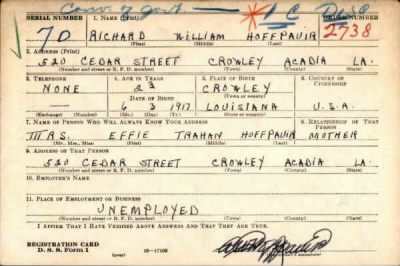 Conv. of Govt. — * 1 C Disc
SERIAL NUMBER 1. NAME (Print) ORDER NUMBER
70 RICHARD WILLIAM HOFFPAUIR 2738
(First) (Middle) (Last)
2. ADDRESS (Print)
520 CEDAR STREET CROWLEY ACADIA LA.
(Number and street or R. F. D. number) (Town) (County) (State)
3. TELEPHONE 4. AGE IN YEARS 5. PLACE OF BIRTH 6. COUNTRY OF CITIZENSHIP
NONE 23 CROWLEY
DATE OF BIRTH (Town or county)
6 3 1917 LOUISIANA U.S.A.
(Exchange) (Number) (Mo.) (Day) (Yr.) (State or country)
7. NAME OF PERSON WHO WILL ALWAYS KNOW YOUR ADDRESS 8. RELATIONSHIP OF THAT PERSON
MRS. EFFIE TRAHAN HOFFPAUIR MOTHER
(Mr., Mrs., Miss) (First) (Middle) (Last)
9. ADDRESS OF THAT PERSON
520 CEDAR STREET CROWLEY ACADIA LA.
(Number and street or R. F. D. number) (Town) (County) (State)
10. EMPLOYER'S NAME
11. PLACE OF EMPLOYMENT OR BUSINESS
UNEMPLOYED
(Number and street or R. F. D. number) (Town) (County) (State)
I AFFIRM THAT I HAVE VERIFIED ABOVE ANSWERS AND THAT THEY ARE TRUE.
REGISTRATION CARD
D. S. S. Form 1 (over) 16—17105